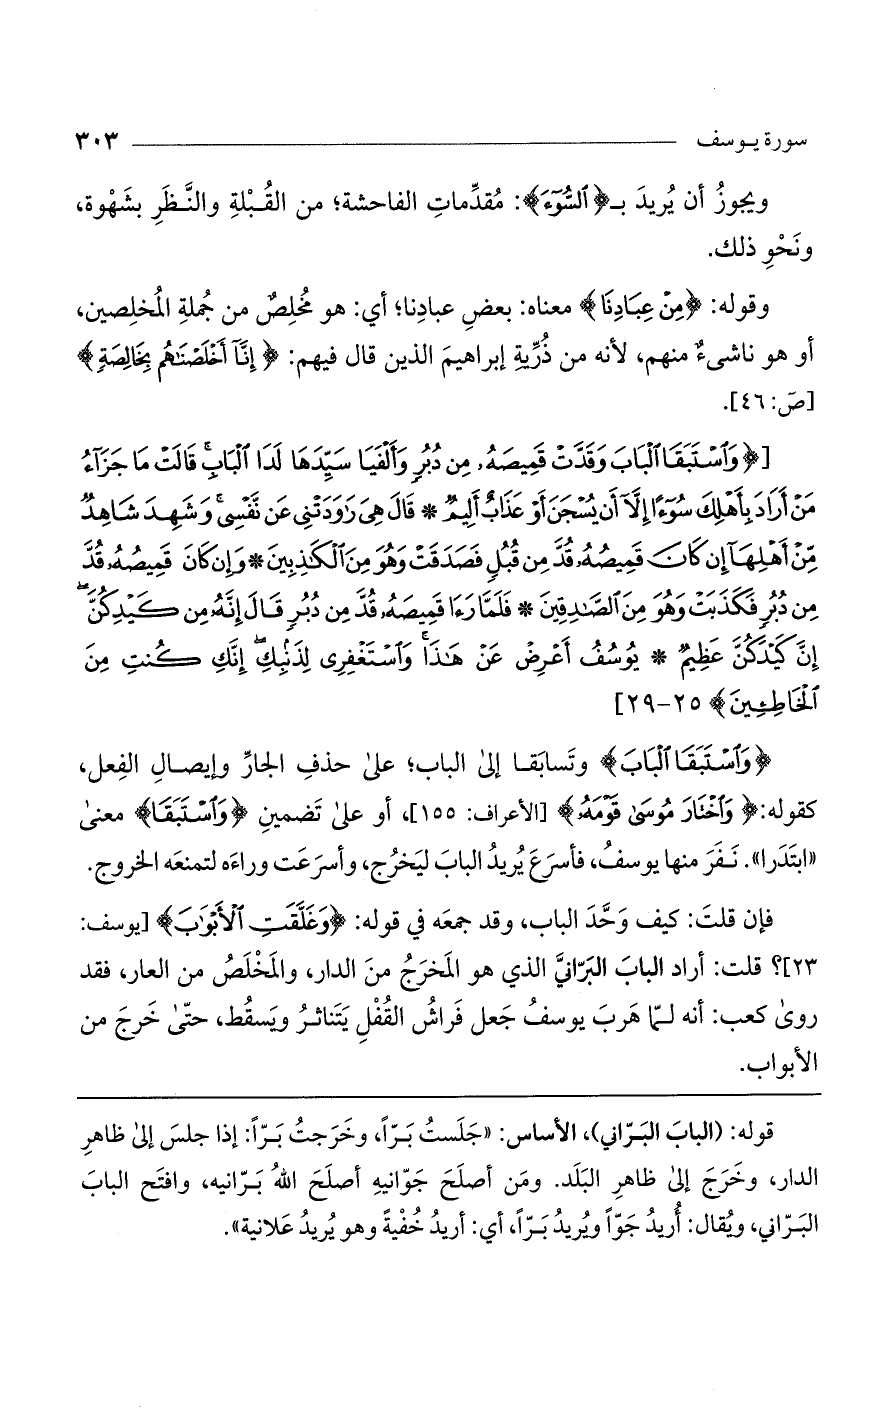 سورة يوسف ٣٠٣
ويجوزُ أن يُريدَ بـ﴿ٱلسُّوٓءَ﴾: مُقدِّماتِ الفاحشة؛ من القُبْلةِ والنَّظَرِ بشَهْوة،
ونَحْوِ ذلك.
وقوله: ﴿مِنْ عِبَادِنَا﴾ معناه: بعضِ عبادِنا؛ أي: هو مُخلِصٌ من جُملةِ المُخلِصين،
أو هو ناشىءٌ منهم، لأنه من ذُرِّيةِ إبراهيمَ الذين قال فيهم: ﴿إِنَّآ أَخْلَصْنَٰهُم بِخَالِصَةٍ﴾
[صَ: ٤٦].
[﴿وَٱسْتَبَقَا ٱلْبَابَ وَقَدَّتْ قَمِيصَهُۥ مِن دُبُرٍ وَأَلْفَيَا سَيِّدَهَا لَدَا ٱلْبَابِ ۚ قَالَتْ مَا جَزَآءُ
مَنْ أَرَادَ بِأَهْلِكَ سُوٓءًا إِلَّآ أَن يُسْجَنَ أَوْ عَذَابٌ أَلِيمٌ * قَالَ هِىَ رَٰوَدَتْنِى عَن نَّفْسِى ۚ وَشَهِدَ شَاهِدٌ
مِّنْ أَهْلِهَآ إِن كَانَ قَمِيصُهُۥ قُدَّ مِن قُبُلٍ فَصَدَقَتْ وَهُوَ مِنَ ٱلْكَٰذِبِينَ * وَإِن كَانَ قَمِيصُهُۥ قُدَّ
مِن دُبُرٍ فَكَذَبَتْ وَهُوَ مِنَ ٱلصَّٰدِقِينَ * فَلَمَّا رَءَا قَمِيصَهُۥ قُدَّ مِن دُبُرٍ قَالَ إِنَّهُۥ مِن كَيْدِكُنَّ ۖ
إِنَّ كَيْدَكُنَّ عَظِيمٌ * يُوسُفُ أَعْرِضْ عَنْ هَٰذَا ۚ وَٱسْتَغْفِرِى لِذَنۢبِكِ ۖ إِنَّكِ كُنتِ مِنَ
ٱلْخَاطِـِٔينَ﴾ ٢٥-٢٩]
﴿وَٱسْتَبَقَا ٱلْبَابَ﴾ وتَسابَقا إلىٰ الباب؛ علىٰ حذفِ الجارِّ وإيصالِ الفِعل،
كقوله: ﴿وَٱخْتَارَ مُوسَىٰ قَوْمَهُۥ﴾ [الأعراف: ١٥٥]، أو علىٰ تَضمينِ ﴿وَٱسْتَبَقَا﴾ معنىٰ
«ابتَدَرا». نَفَرَ منها يوسفُ، فأسرَعَ يُريدُ البابَ ليَخرُج، وأسرَعَت وراءَه لتمنعَه الخروج.
فإن قلتَ: كيف وَحَّدَ الباب، وقد جمعَه في قوله: ﴿وَغَلَّقَتِ ٱلْأَبْوَٰبَ﴾ [يوسف:
٢٣]؟ قلت: أراد البابَ البَرّانيَّ الذي هو المَخرَجُ منَ الدار، والمَخْلَصُ من العار، فقد
روىٰ كعب: أنه لمّا هَربَ يوسفُ جَعل فَراشُ القُفْلِ يَتَناثرُ ويَسقُط، حتّىٰ خَرجَ من
الأبواب.
قوله: (البابَ البَرّاني)، الأساس: «جَلَستُ بَرّاً، وخَرَجتُ بَرّاً: إذا جلسَ إلىٰ ظاهرِ
الدار، وخَرَجَ إلىٰ ظاهرِ البَلَد. ومَن أصلَحَ جَوّانيهِ أصلَحَ اللهُ بَرّانيه، وافتَح البابَ
البَرّاني، ويُقال: أُريدُ جَوّاً ويُريدُ بَرّاً، أي: أريدُ خُفْيةً وهو يُريدُ عَلانية».